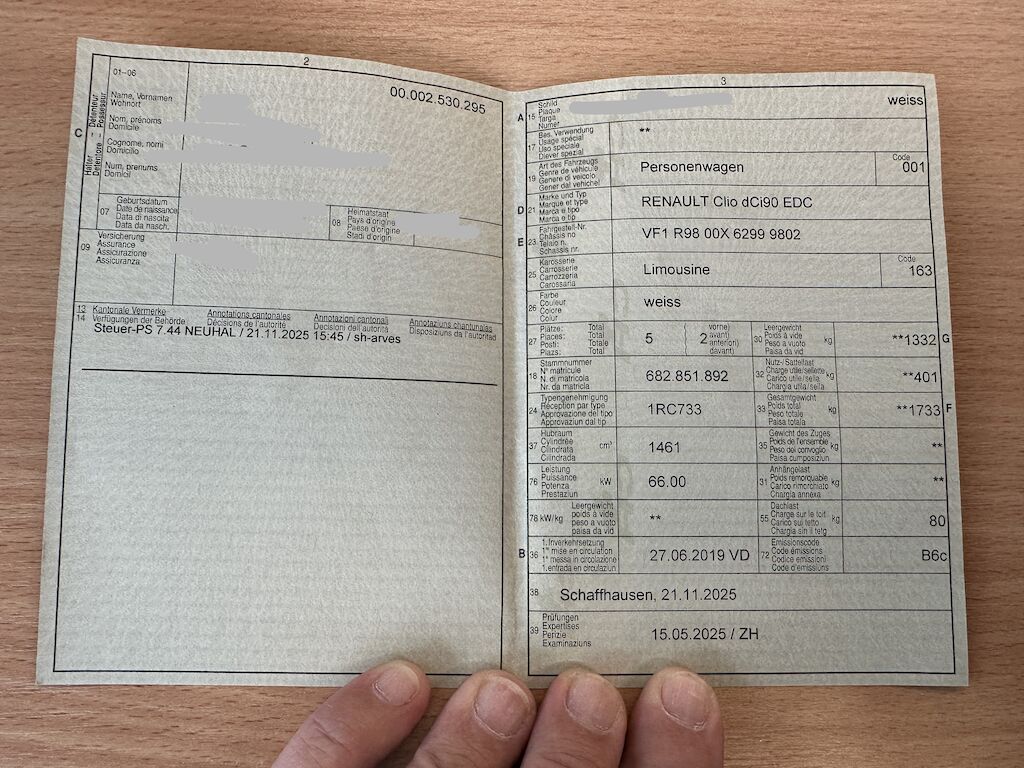 2
00.002.530.295
C
Halter – Détenteur
Detentore – Possessur
01–06
Name, Vornamen
Wohnort
Nom, prénoms
Domicile
Cognome, nomi
Domicilio
Num, prenums
Domicil
07
Geburtsdatum
Date de naissance
Data di nascita
Data da nasch.
08
Heimatstaat
Pays d'origine
Paese d'origine
Stadi d'origin
09
Versicherung
Assurance
Assicurazione
Assicuranza
13 Kantonale Vermerke Annotations cantonales Annotazioni cantonali Annotaziuns chantunalas
14 Verfügungen der Behörde Décisions de l'autorité Decisioni dell'autorità Disposiziuns da l'autoritad
Steuer-PS 7.44 NEUHAL / 21.11.2025 15:45 / sh-arves
3
A 15
Schild
Plaque
Targa
Numer
weiss
17
Bes. Verwendung
Usage spécial
Uso speciale
Diever spezial
**
19
Art des Fahrzeugs
Genre de véhicule
Genere di veicolo
Gener dal vehichel
Personenwagen
Code
001
D 21
Marke und Typ
Marque et type
Marca e tipo
Marca e tip
RENAULT Clio dCi90 EDC
E 23
Fahrgestell-Nr.
Châssis no
Telaio n.
Schassis nr.
VF1 R98 00X 6299 9802
25
Karosserie
Carrosserie
Carrozzeria
Carossaria
Limousine
Code
163
26
Farbe
Couleur
Colore
Colur
weiss
27
Plätze: Total
Places: Total
Posti: Totale
Plazs: Total
5
(2
vorne)
avant)
anteriori)
davant)
30
Leergewicht
Poids à vide
Peso a vuoto
Paisa da vid
kg
**1332 G
18
Stammnummer
N° matricule
N. di matricola
Nr. da matricla
682.851.892
32
Nutz-/Sattellast
Charge utile/sellette
Carico utile/sella
Chargia utila/sella
kg
**401
24
Typengenehmigung
Réception par type
Approvazione del tipo
Approvaziun dal tip
1RC733
33
Gesamtgewicht
Poids total
Peso totale
Paisa totala
kg
**1733 F
37
Hubraum
Cylindrée
Cilindrata
Cilindrada
cm³
1461
35
Gewicht des Zuges
Poids de l'ensemble
Peso del convoglio
Paisa cumposiziun
kg
**
76
Leistung
Puissance
Potenza
Prestaziun
kW
66.00
31
Anhängelast
Poids remorquable
Carico rimorchiato
Chargia annexa
kg
**
78 kW/kg
Leergewicht
poids à vide
peso a vuoto
paisa da vid
**
55
Dachlast
Charge sur le toit
Carico sul tetto
Chargia sin il tetg
kg
80
B 36
1. Inverkehrsetzung
1re mise en circulation
1a messa in circolazione
1. entrada en circulaziun
27.06.2019 VD
72
Emissionscode
Code émissions
Codice emissioni
Code d'emissiuns
B6c
38
Schaffhausen, 21.11.2025
39
Prüfungen
Expertises
Perizie
Examinaziuns
15.05.2025 / ZH